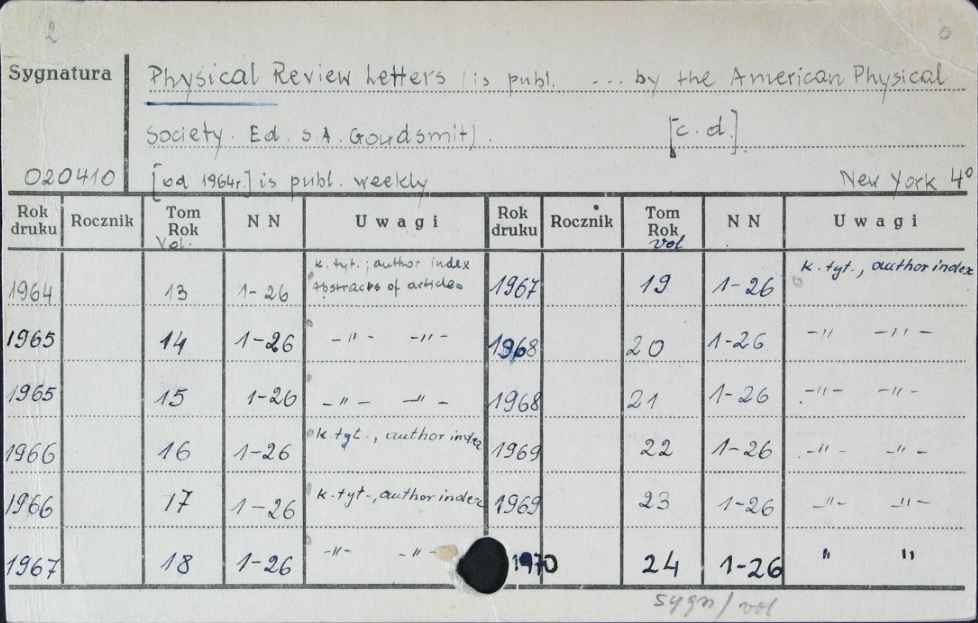 2
0
Sygnatura
Physical Review Letters (is publ. ... by the American Physical
Society. Ed. S.A. Goudsmit).
[c. d.]
020410
[od 1964r.] is publ. weekly
New York 4°
Rok druku Rocznik Tom Rok Vol. N N Uwagi Rok druku Rocznik Tom Rok vol N N Uwagi
1964 13 1-26 k. tyt.; author index abstracts of articles 1967 19 1-26 k. tyt., author index
1965 14 1-26 -"- -"- 1968 20 1-26 -" -"-
1965 15 1-26 -"- -"- 1968 21 1-26 -"- -"-
1966 16 1-26 k. tyt., author index 1969 22 1-26 -"- -"-
1966 17 1-26 k. tyt., author index 1969 23 1-26 -"- -"-
1967 18 1-26 -"- -"- 1970 24 1-26 " "
sygn/vol